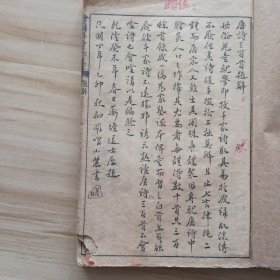 唐詩三百首題辭
世俗兒童就學即授千家詩取其易於成誦故流傳
不廢但其詩隨手掇拾工拙莫辨且止五七言律絕二
體而唐宋人又雜出其間殊乖體製因專就唐詩中
膾炙人口之作擇其尤要者每體得數十首共三百
餘首錄成一編為家塾課本俾童而習之白首亦莫能
廢較千家詩不遠勝耶諺云熟讀唐詩三百首不會
吟詩也會吟請以是編驗之
乾隆癸未年春日蘅塘退士原題
民國四年乙卯秋初 山農書